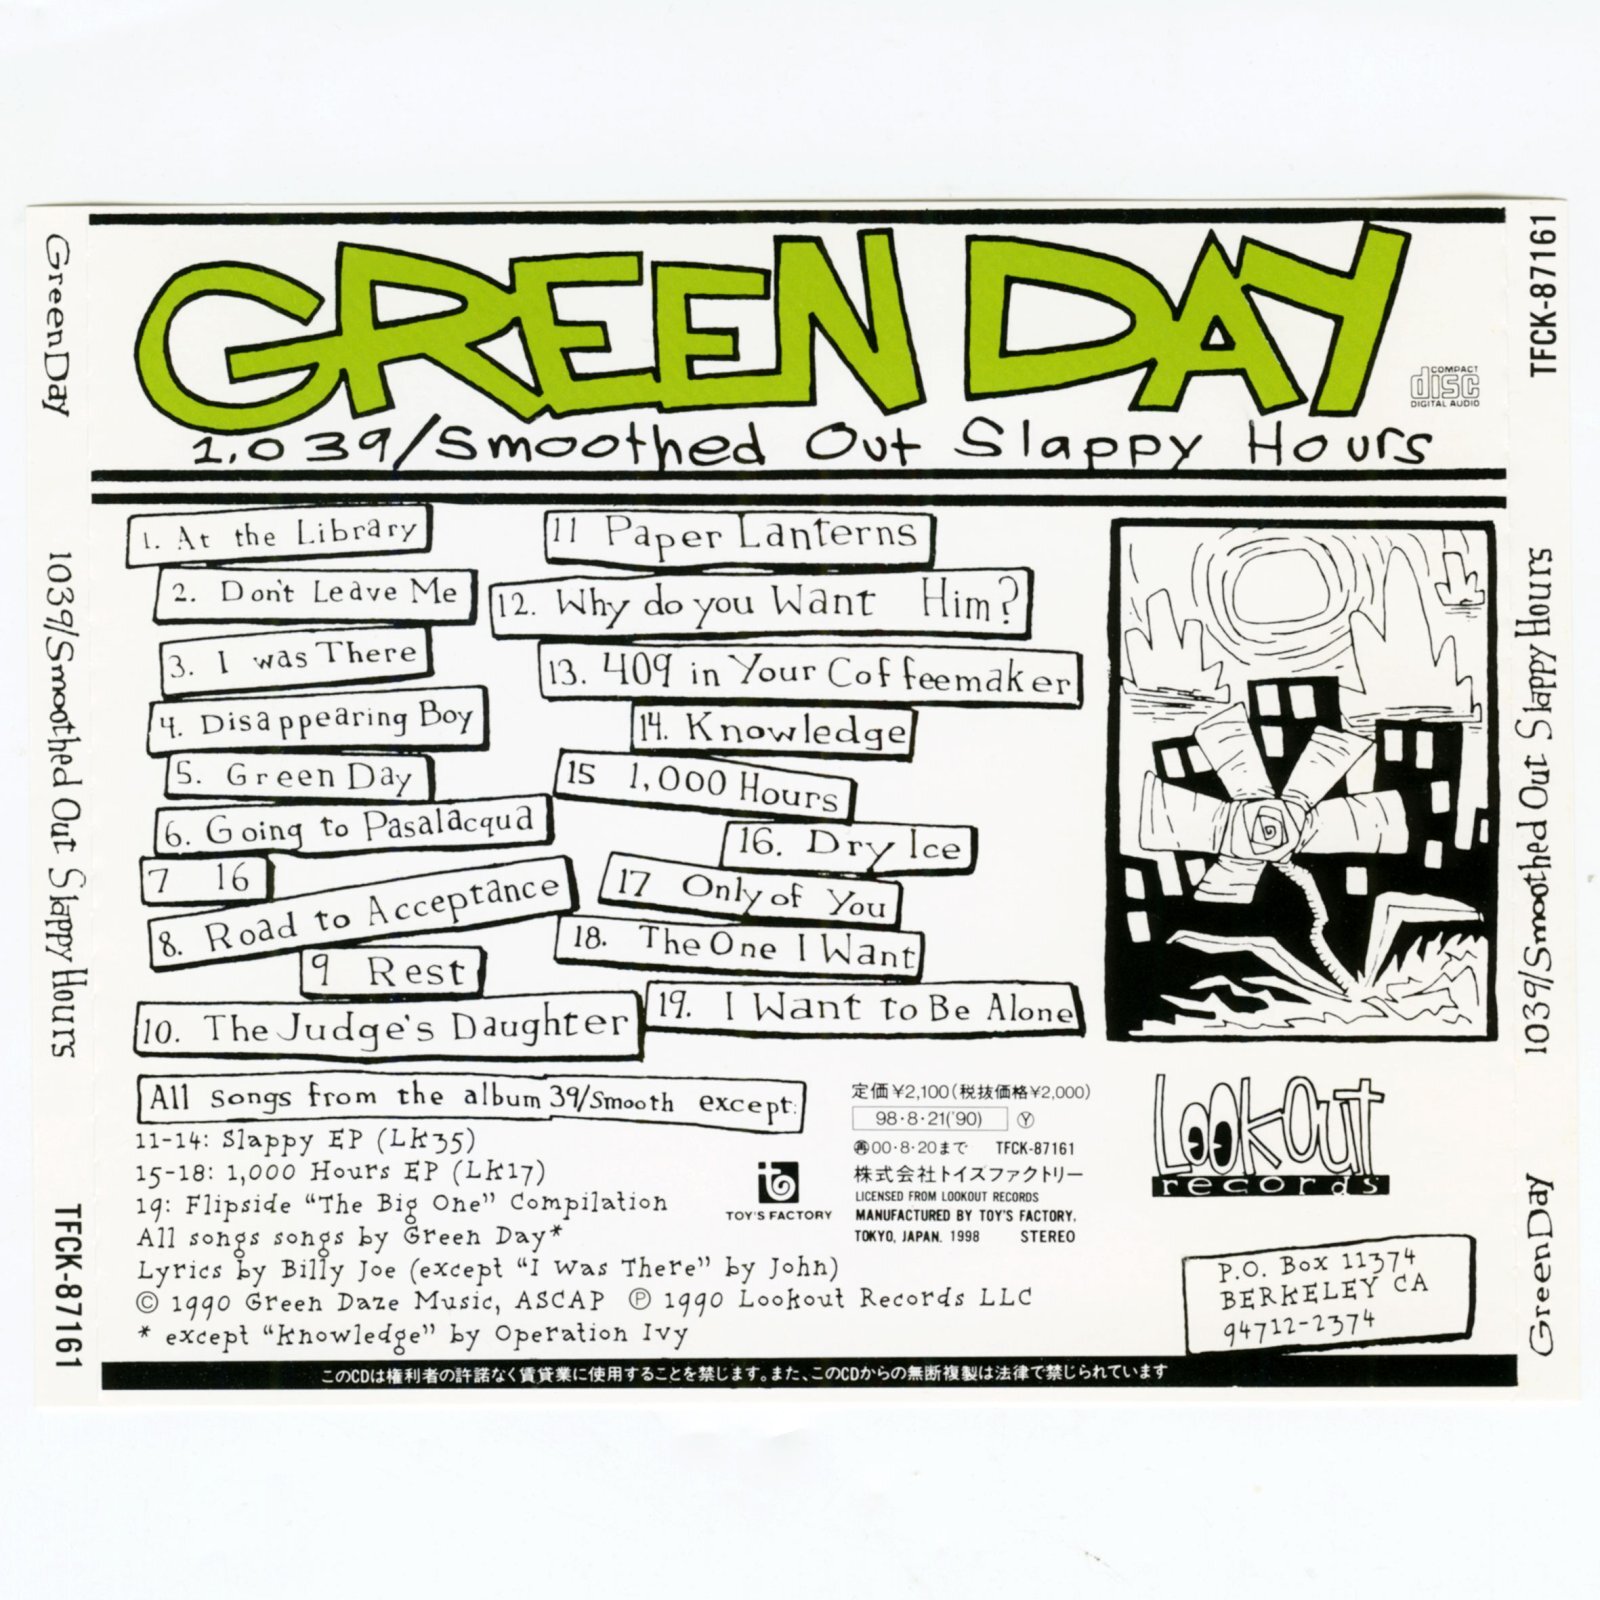 GREEN DAY
COMPACT
disc
DIGITAL AUDIO
1,039/Smoothed Out Slappy Hours
1. At the Library
2. Don't Leave Me
3. I was There
4. Disappearing Boy
5. Green Day
6. Going to Pasalacqua
7 16
8. Road to Acceptance
9 Rest
10. The Judge's Daughter
11 Paper Lanterns
12. Why do you Want Him?
13. 409 in Your Coffeemaker
14. Knowledge
15 1,000 Hours
16. Dry Ice
17 Only of You
18. The One I Want
19. I Want to Be Alone
All songs from the album 39/Smooth except:
11-14: Slappy EP (LK35)
15-18: 1,000 Hours EP (LK17)
19: Flipside "The Big One" Compilation
All songs songs by Green Day*
Lyrics by Billy Joe (except "I Was There" by John)
© 1990 Green Daze Music, ASCAP ℗ 1990 Lookout Records LLC
* except "Knowledge" by Operation Ivy
TOY'S FACTORY
定価¥2,100(税抜価格¥2,000)
98・8・21('90) Ⓨ
再00・8・20まで TFCK-87161
株式会社トイズファクトリー
LICENSED FROM LOOKOUT RECORDS
MANUFACTURED BY TOY'S FACTORY,
TOKYO, JAPAN. 1998 STEREO
Lookout
records
P.O. Box 11374
BERKELEY CA
94712-2374
このCDは権利者の許諾なく賃貸業に使用することを禁じます。また、このCDからの無断複製は法律で禁じられています
Green Day
1039/Smoothed Out Slappy Hours
TFCK-87161
TFCK-87161
1039/Smoothed Out Slappy Hours
Green Day